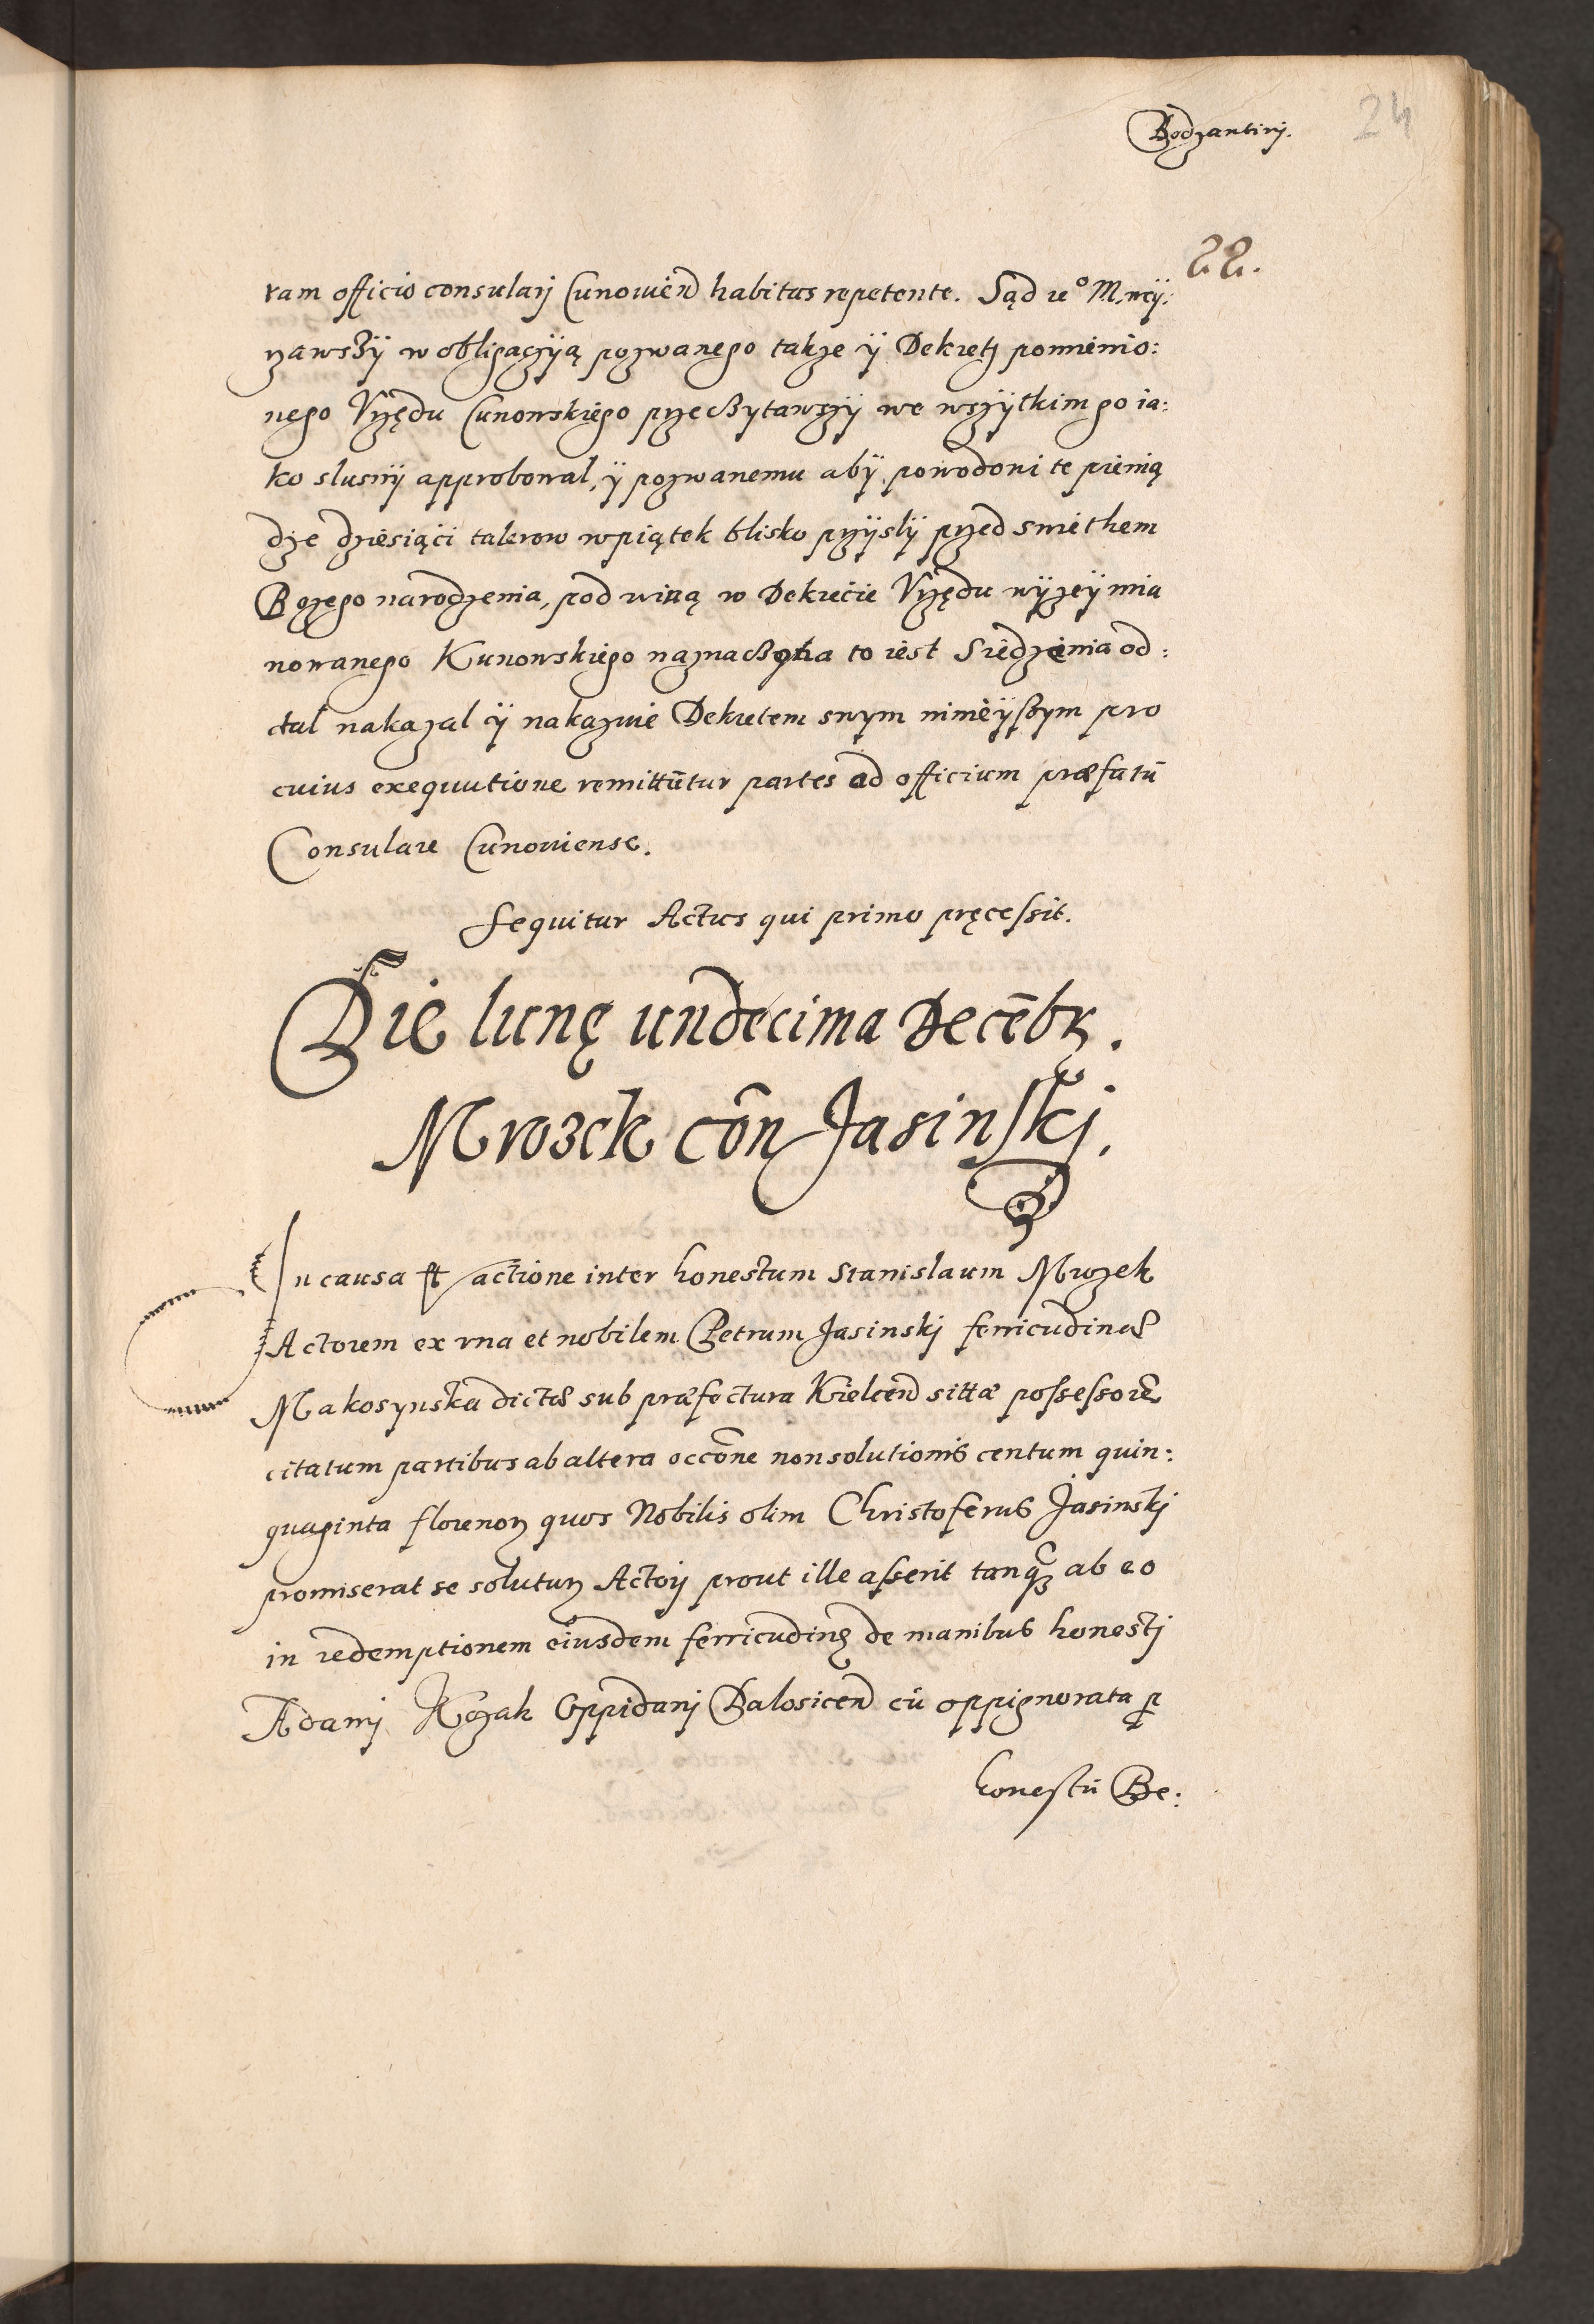 Bodzantinj.
24
22.
ram officio consularj Cunowień habitas repetente. Sąd ie° M. wej:
rzawszÿ w obligaczÿą pozwanego takze ÿ Dekretj pomienio:
nego Vrzędu Cunowskiego przeczytawszÿ we wszÿtkim go ia:
ko slusnÿ approbowal, ÿ pozwanemu abÿ powodowi te pienią
dze dziesiąći talerow w piątek blisko przÿslÿ przed swiethem
Bozego narodzenia, pod winą w Dekrećie Vrzędu wÿzeÿ mia
nowanego Kunowskiego naznaczona to iest Siedzenia od:
dal nakazal ÿ nakazuie Dekretem swym ninieÿszym pro
cuius exequutione remittũtur partes ad officium præfatũ
Consulare Cunouiense.
Sequitur Actus qui primo pręcessit.
Die lunę undecima Decẽbr.
Mrozek cõn Jasinskj.
In causa et actione inter honestum Stanislaum Mrozek
Actorem ex vna et nobilem Petrum Jasinskj ferricudinæ
Makosynska dictæ sub præfectura Kielceń sittæ possessorẽ
citatum partibus ab altera occõne non solutionis centum quin:
quaginta florenorz quos Nobilis olim Christoferus Jasinskj
promiserat se soluturz Actorj prout ille asserit tanqz ab eo
in redemptionem eiusdem ferricudinę de manibus honestj
Adamj Kozak Oppidanj Dalosiceń cũ oppignorata p
honestũ Be: